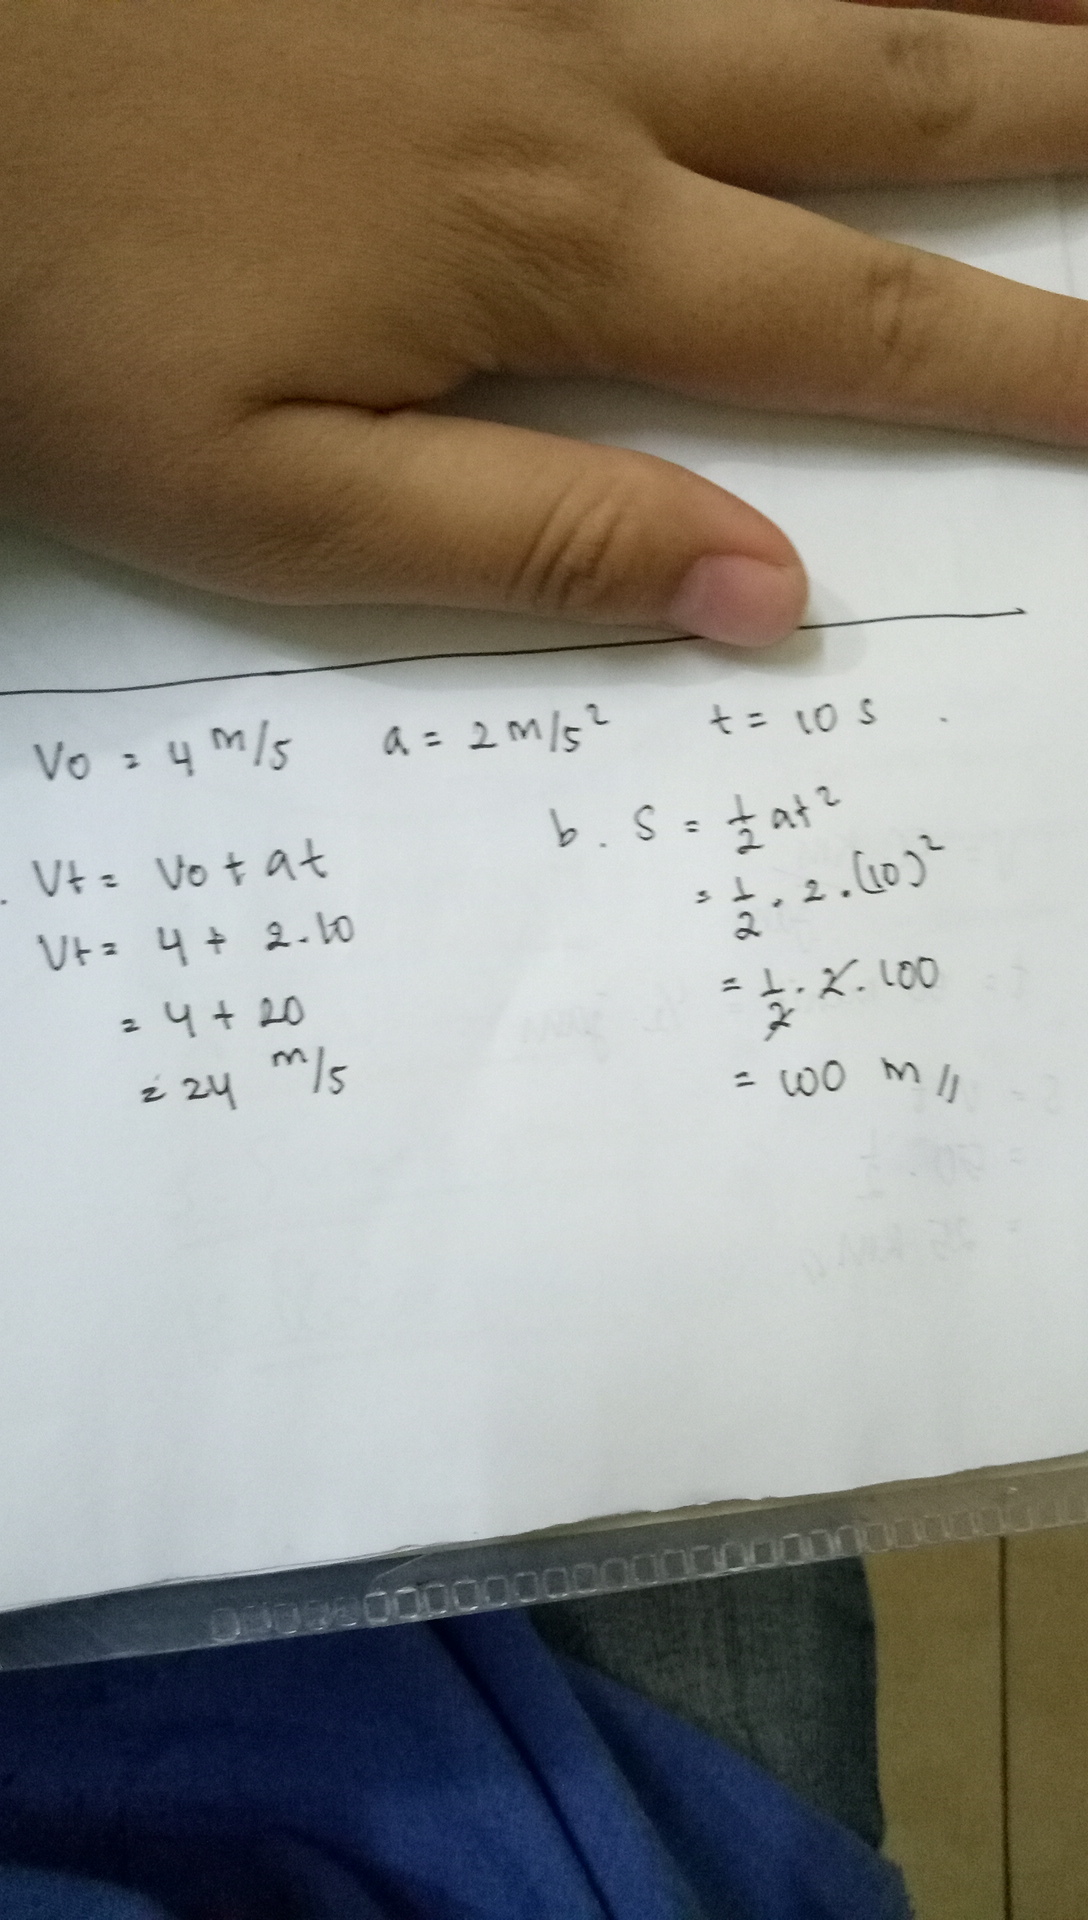 Vo = 4 m/s    a = 2 m/s²    t = 10 s .
. Vt = Vo + at
Vt = 4 + 2.10
= 4 + 20
= 24 m/s
b. S = 1/2 at²
= 1/2 . 2 . (10)²
= 1/2 . 2 . 100
= 100 m //